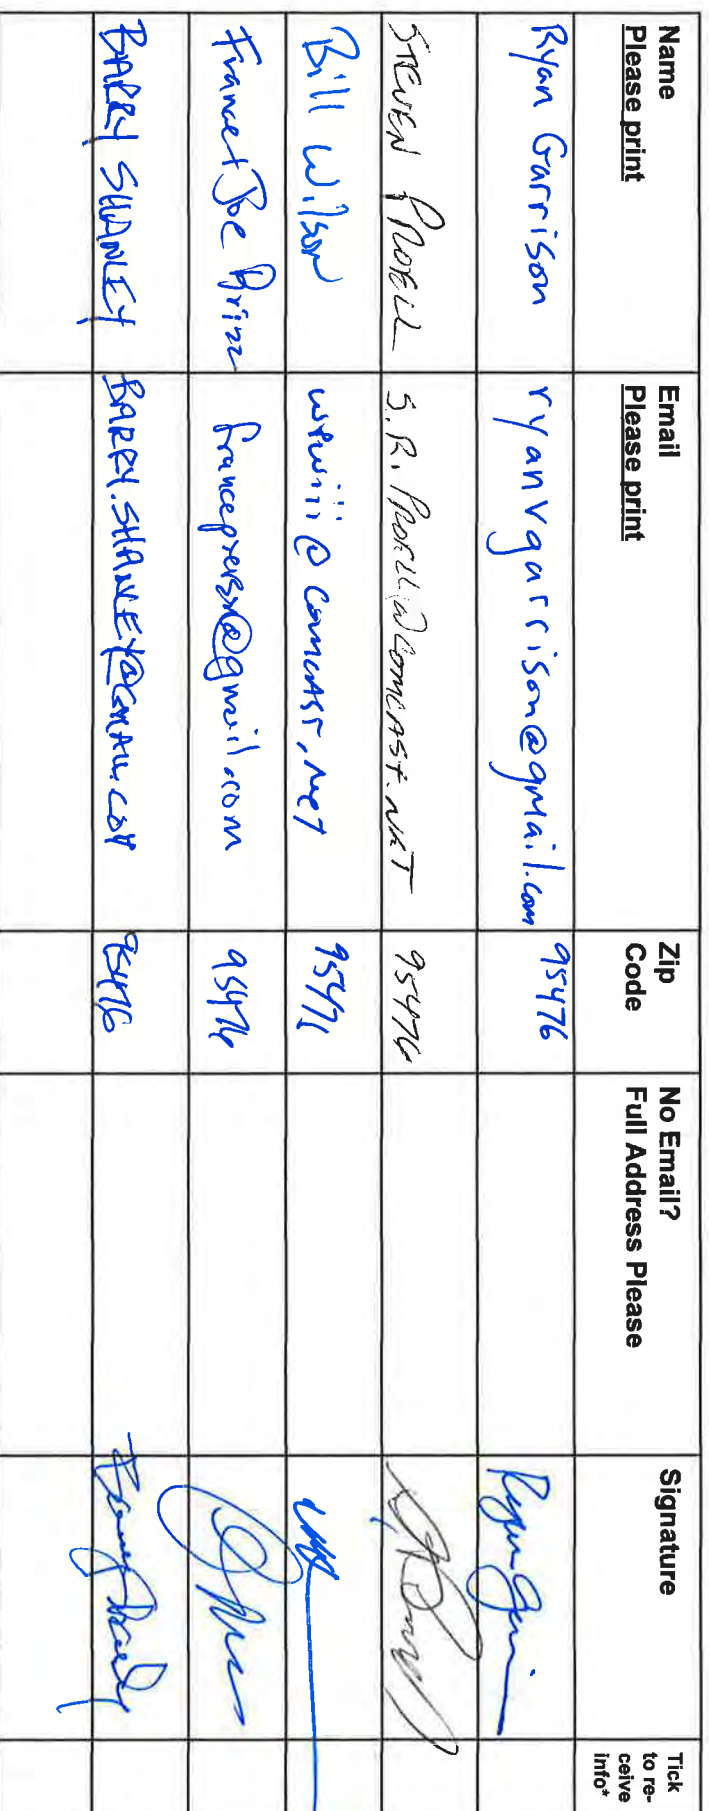 Name Please print | Email Please print | Zip Code | No Email? Full Address Please | Signature | Tick to re-ceive info*
Ryan Garrison | ryanvgarrison@gmail.com | 95476
STEVEN PROELL | S.R.PROELL@COMCAST.NET | 95476
Bill Wilson | @comcast.net | 95471
France + Joe Brizz | @gmail.com | 95476
BARRY SHANLEY | BARRY.SHANLEY@GMAIL.COM | 95476